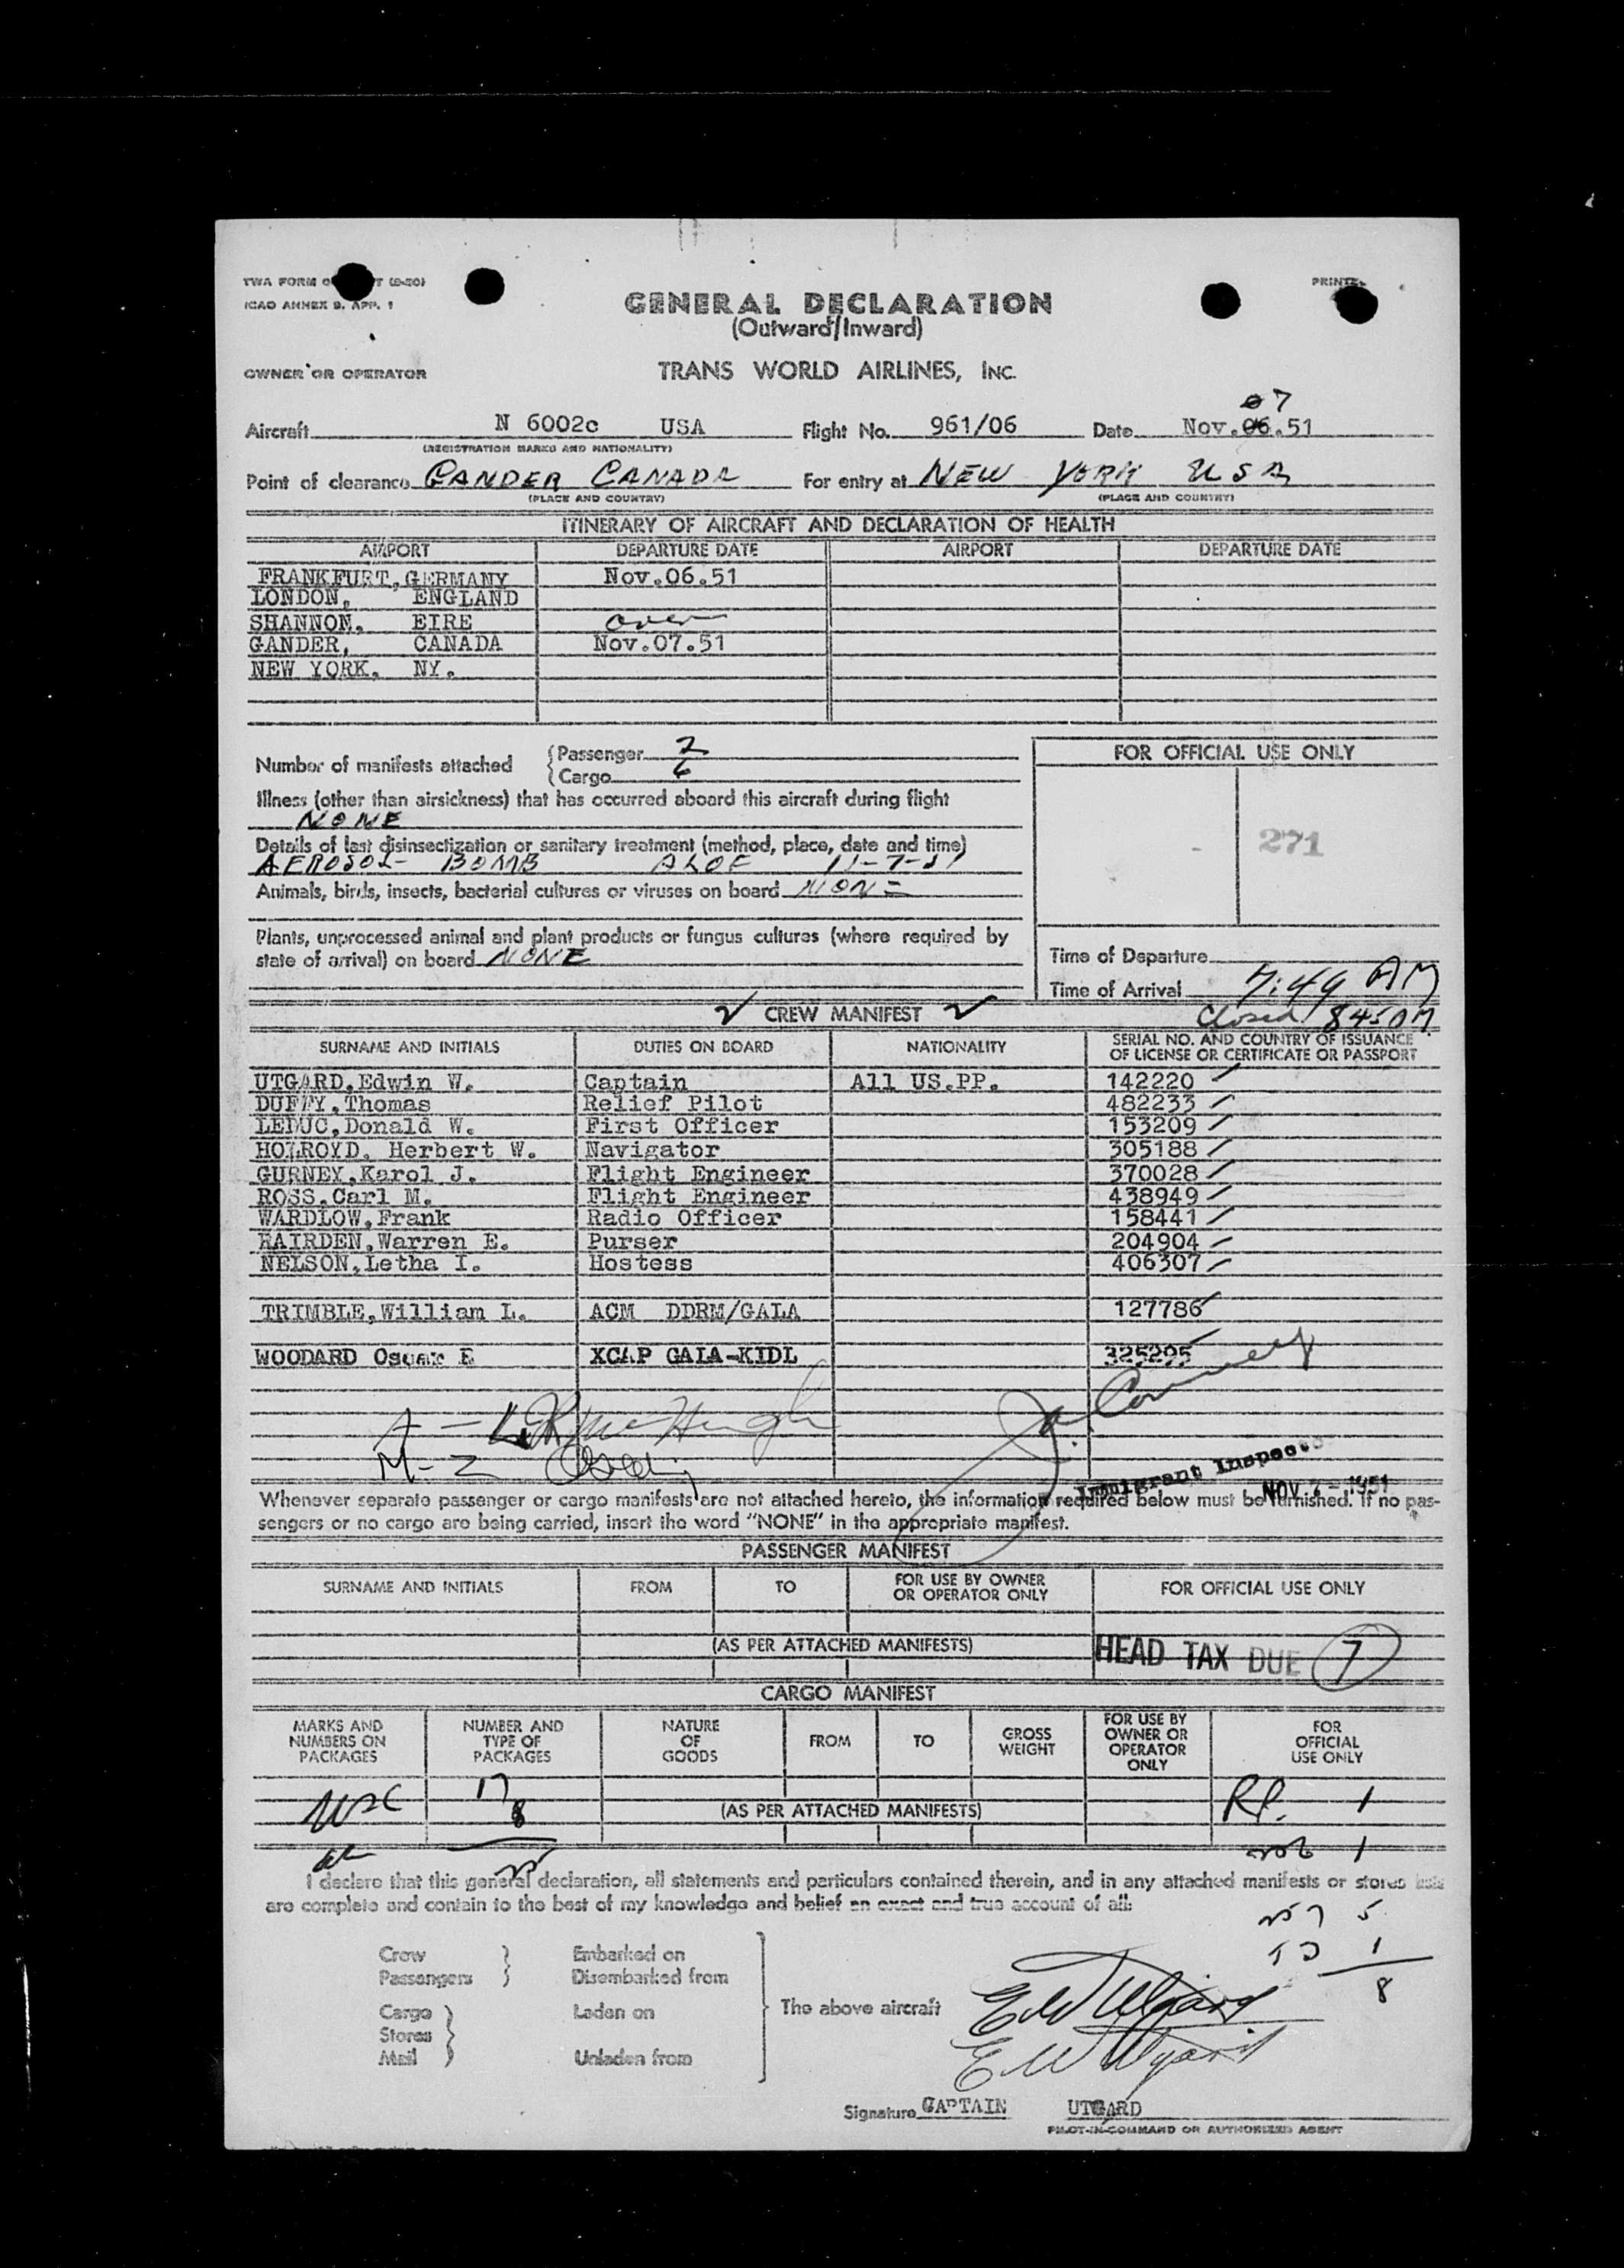 TWA FORM
ICAO ANNEX 9, APP. 1
GENERAL DECLARATION
(Outward/Inward)
OWNER OR OPERATOR TRANS WORLD AIRLINES, INC.
07
Aircraft N 6002c USA Flight No. 961/06 Date Nov.06.51
(REGISTRATION MARKS AND NATIONALITY)
Point of clearance GANDER CANADA For entry at NEW YORK USA
(PLACE AND COUNTRY) (PLACE AND COUNTRY)
ITINERARY OF AIRCRAFT AND DECLARATION OF HEALTH
AIRPORT DEPARTURE DATE AIRPORT DEPARTURE DATE
FRANKFURT, GERMANY Nov.06.51
LONDON, ENGLAND
SHANNON, EIRE over
GANDER, CANADA Nov.07.51
NEW YORK. NY.
Number of manifests attached
Passenger 2
Cargo 6
FOR OFFICIAL USE ONLY
Illness (other than airsickness) that has occurred aboard this aircraft during flight
NONE
271
Details of last disinsectization or sanitary treatment (method, place, date and time)
AEROSOL BOMB ALOF 11-7-51
Animals, birds, insects, bacterial cultures or viruses on board NONE
Plants, unprocessed animal and plant products or fungus cultures (where required by
state of arrival) on board NONE
Time of Departure
Time of Arrival 7:49 AM
Closed 845
CREW MANIFEST
SURNAME AND INITIALS DUTIES ON BOARD NATIONALITY SERIAL NO. AND COUNTRY OF ISSUANCE OF LICENSE OR CERTIFICATE OR PASSPORT
UTGARD,Edwin W. Captain All US.PP. 142220
DUFFY,Thomas Relief Pilot 482233
LEDUC,Donald W. First Officer 153209
HOLROYD. Herbert W. Navigator 305188
GURNEY,Karol J. Flight Engineer 370028
ROSS,Carl M. Flight Engineer 438949
WARDLOW,Frank Radio Officer 158441
RAIRDEN,Warren E. Purser 204904
NELSON,Letha I. Hostess 406307
TRIMBLE,William L. ACM DDRM/GALA 127786
WOODARD Oscar E XCAP GALA-KIDL 325295
A - L
M-Z
Immigrant Inspector
NOV 7 - 1951
Whenever separate passenger or cargo manifests are not attached hereto, the information required below must be furnished. If no pas-
sengers or no cargo are being carried, insert the word "NONE" in the appropriate manifest.
PASSENGER MANIFEST
SURNAME AND INITIALS FROM TO FOR USE BY OWNER OR OPERATOR ONLY FOR OFFICIAL USE ONLY
(AS PER ATTACHED MANIFESTS)
HEAD TAX DUE 7
CARGO MANIFEST
MARKS AND NUMBERS ON PACKAGES NUMBER AND TYPE OF PACKAGES NATURE OF GOODS FROM TO GROSS WEIGHT FOR USE BY OWNER OR OPERATOR ONLY FOR OFFICIAL USE ONLY
17
8
(AS PER ATTACHED MANIFESTS)
RP. 1
1
I declare that this general declaration, all statements and particulars contained therein, and in any attached manifests or stores lists
are complete and contain to the best of my knowledge and belief an exact and true account of all:
5
1
8
Crew
Passengers
Embarked on
Disembarked from
Cargo
Stores
Mail
Laden on
Unladen from
The above aircraft
E W Utgard
E W Utgard
Signature CAPTAIN UTGARD
PILOT-IN-COMMAND OR AUTHORIZED AGENT